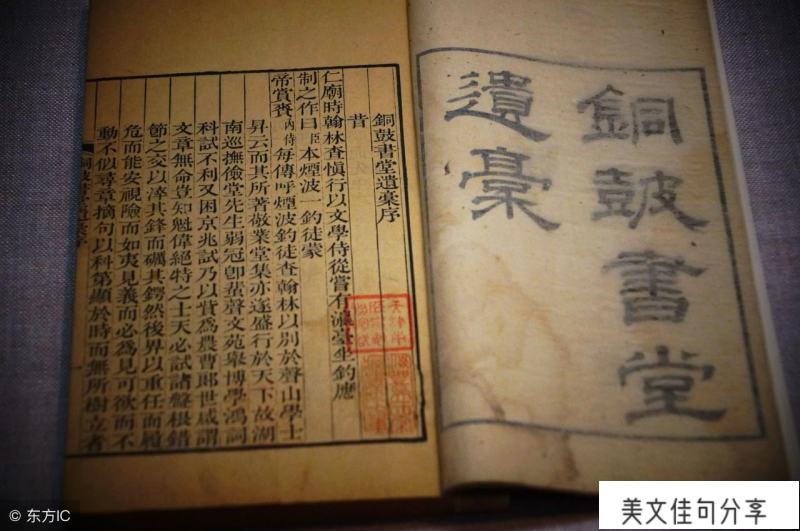 銅鼓書堂
遺稾
銅鼓書堂遺稾序
昔
仁廟時翰林查慎行以文學侍從嘗有瀛臺坐釣應
制之作曰臣本煙波一釣徒蒙
帝賞賚內侍每傳呼煙波釣徒查翰林以別於聲山學士
昇云而其所著敬業堂集亦遂盛行於天下故湖
南巡撫儉堂先生弱冠卽蜚聲文苑舉博學鴻詞
科試不利又困京兆試乃以貲為農曹郎世咸謂
文章無命豈知魁偉絕特之士天必試諸盤根錯
節之交以淬其鋒而礪其鍔然後畀以重任而履
危而能安視險而如夷見義而必為見可欲而不
動不似尋章摘句以科第顯於時而無所樹立者
銅鼓書堂遺稾序
© 东方IC
美文佳句分享